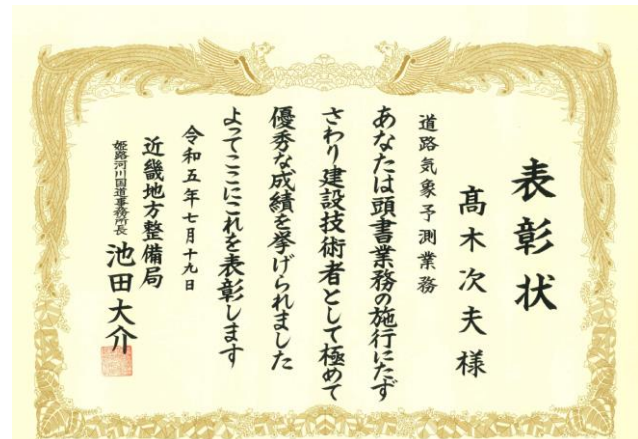 表彰状
髙木次夫様
道路気象予測業務
あなたは頭書業務の施行にたず
さわり建設技術者として極めて
優秀な成績を挙げられました
よってここにこれを表彰します
令和五年七月十九日
近畿地方整備局
姫路河川国道事務所長
池田大介